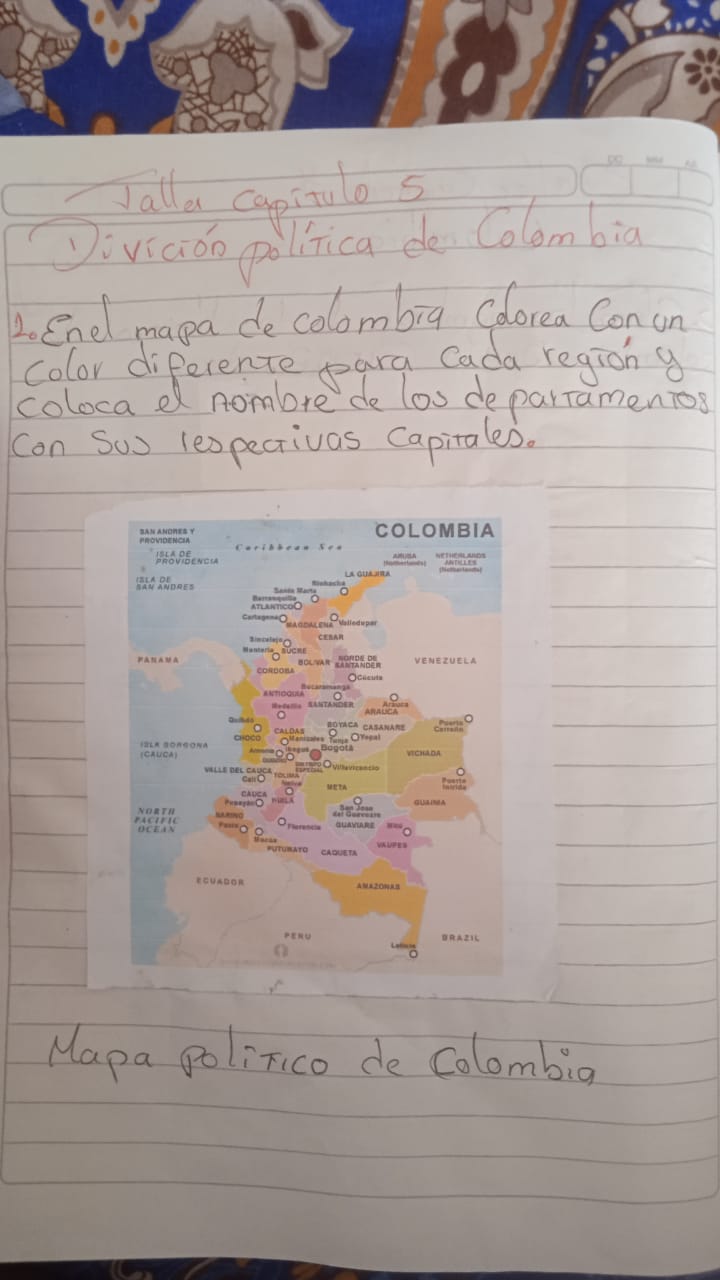 DD MM AA
Taller Capítulo 5
Divición política de Colombia
1. En el mapa de colombia Colorea Con un
Color diferente para Cada región y
Coloca el nombre de los departamentos
Con Sus respectivas Capitales.
COLOMBIA
SAN ANDRES Y
PROVIDENCIA
Caribbean Sea
ISLA DE
PROVIDENCIA
ARUBA
(Netherlands)
NETHERLANDS
ANTILLES
(Netherlands)
ISLA DE
SAN ANDRES
LA GUAJIRA
Riohacha
Santa Marta
Barranquilla
ATLANTICO
Cartagena
MAGDALENA
Valledupar
Sincelejo
CESAR
Monteria
SUCRE
PANAMA
BOLIVAR
NORDE DE
SANTANDER
VENEZUELA
CORDOBA
Cúcuta
Bucaramanga
ANTIOQUIA
Medellin
SANTANDER
Arauca
ARAUCA
Quibdó
BOYACA
CASANARE
Puerto
Carreño
CHOCO
CALDAS
Manizales
Tunja
Yopal
ISLA GORGONA
(CAUCA)
Armenia
Ibague
Bogotá
VICHADA
QUINDIO
DISTRITO
ESPECIAL
Villavicencio
VALLE DEL CAUCA
Cali
TOLIMA
Neiva
META
Puerto
Inirida
CAUCA
Popayán
HUILA
San Jose
del Guaviare
GUAINIA
NORTH
PACIFIC
OCEAN
NARINO
Pasto
Florencia
GUAVIARE
Mitu
Mocoa
PUTUMAYO
CAQUETA
VAUPES
ECUADOR
AMAZONAS
PERU
BRAZIL
Leticia
Mapa político de Colombia